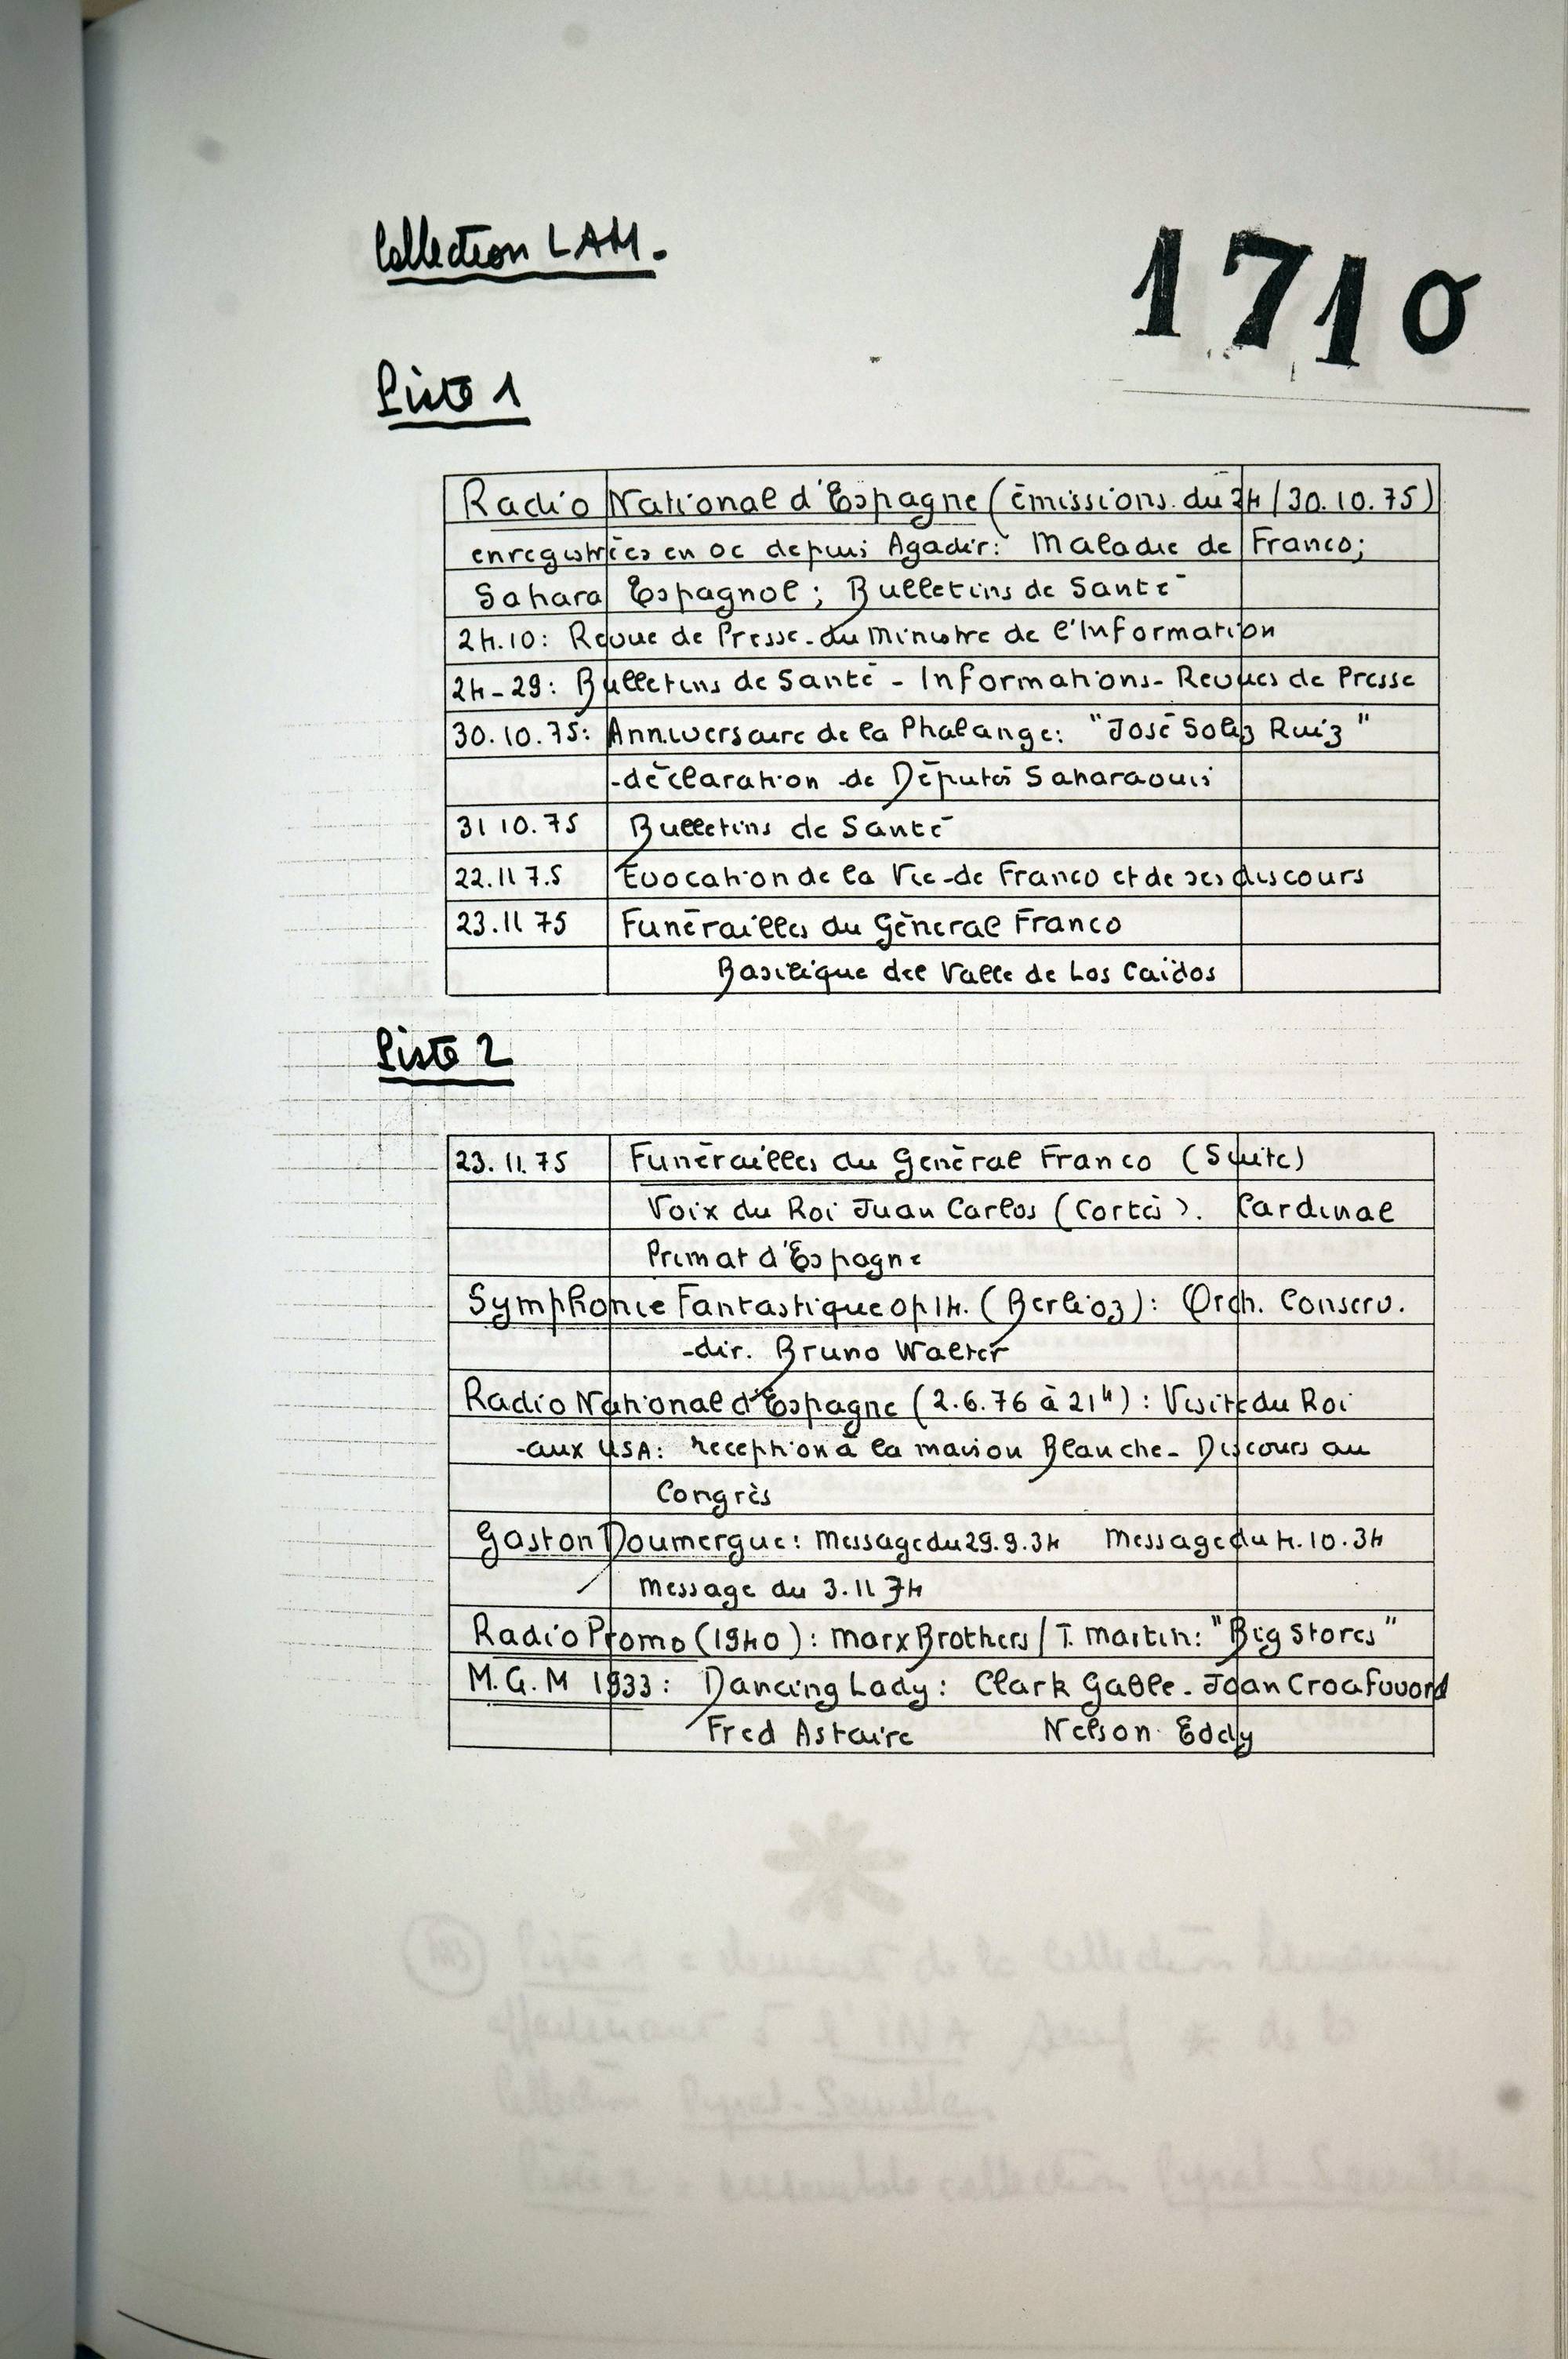 Collection LAM.
1710
Piste 1
Radio National d'Espagne (émissions du 24/30.10.75)
enregistrées en OC depuis Agadir: Maladie de Franco;
Sahara Espagnol; Bulletins de Santé
24.10: Revue de Presse du Ministre de l'Information
24-29: Bulletins de Santé - Informations - Revues de Presse
30.10.75: Anniversaire de la Phalange: "José Soliz Ruiz"
-déclaration de Députés Saharaouis
31 10.75 Bulletins de Santé
22.11 7.5 Evocation de la Vie de Franco et de ses discours
23.11 75 Funérailles du Général Franco
Basilique del Valle de Los Caïdos
Piste 2
23.11.75 Funérailles du Général Franco (Suite)
Voix du Roi Juan Carlos (Cortès). Cardinal
Primat d'Espagne
Symphonie Fantastique op 14. (Berlioz): Orch. Conserv.
-dir. Bruno Walter
Radio National d'Espagne (2.6.76 à 21H): Visite du Roi
-aux USA: réception à la maison Blanche - Discours au
Congrès
Gaston Doumergue: Message du 29.9.34 Message du 4.10.34
Message du 3.11 34
Radio Promo (1940): Marx Brothers / T. Martin: "Big Stores"
M.G.M 1933: Dancing Lady: Clark Gable - Joan Croafuword
Fred Astaire Nelson Eddy